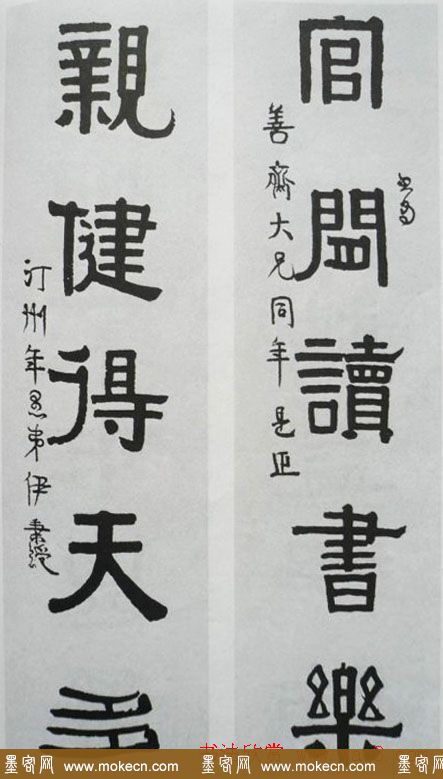 官閒讀書樂
善齋大兄同年是正
親健得天多
汀州年愚弟伊秉綬
墨客网 www.mokecn.com 墨客网 www.mokecn.com